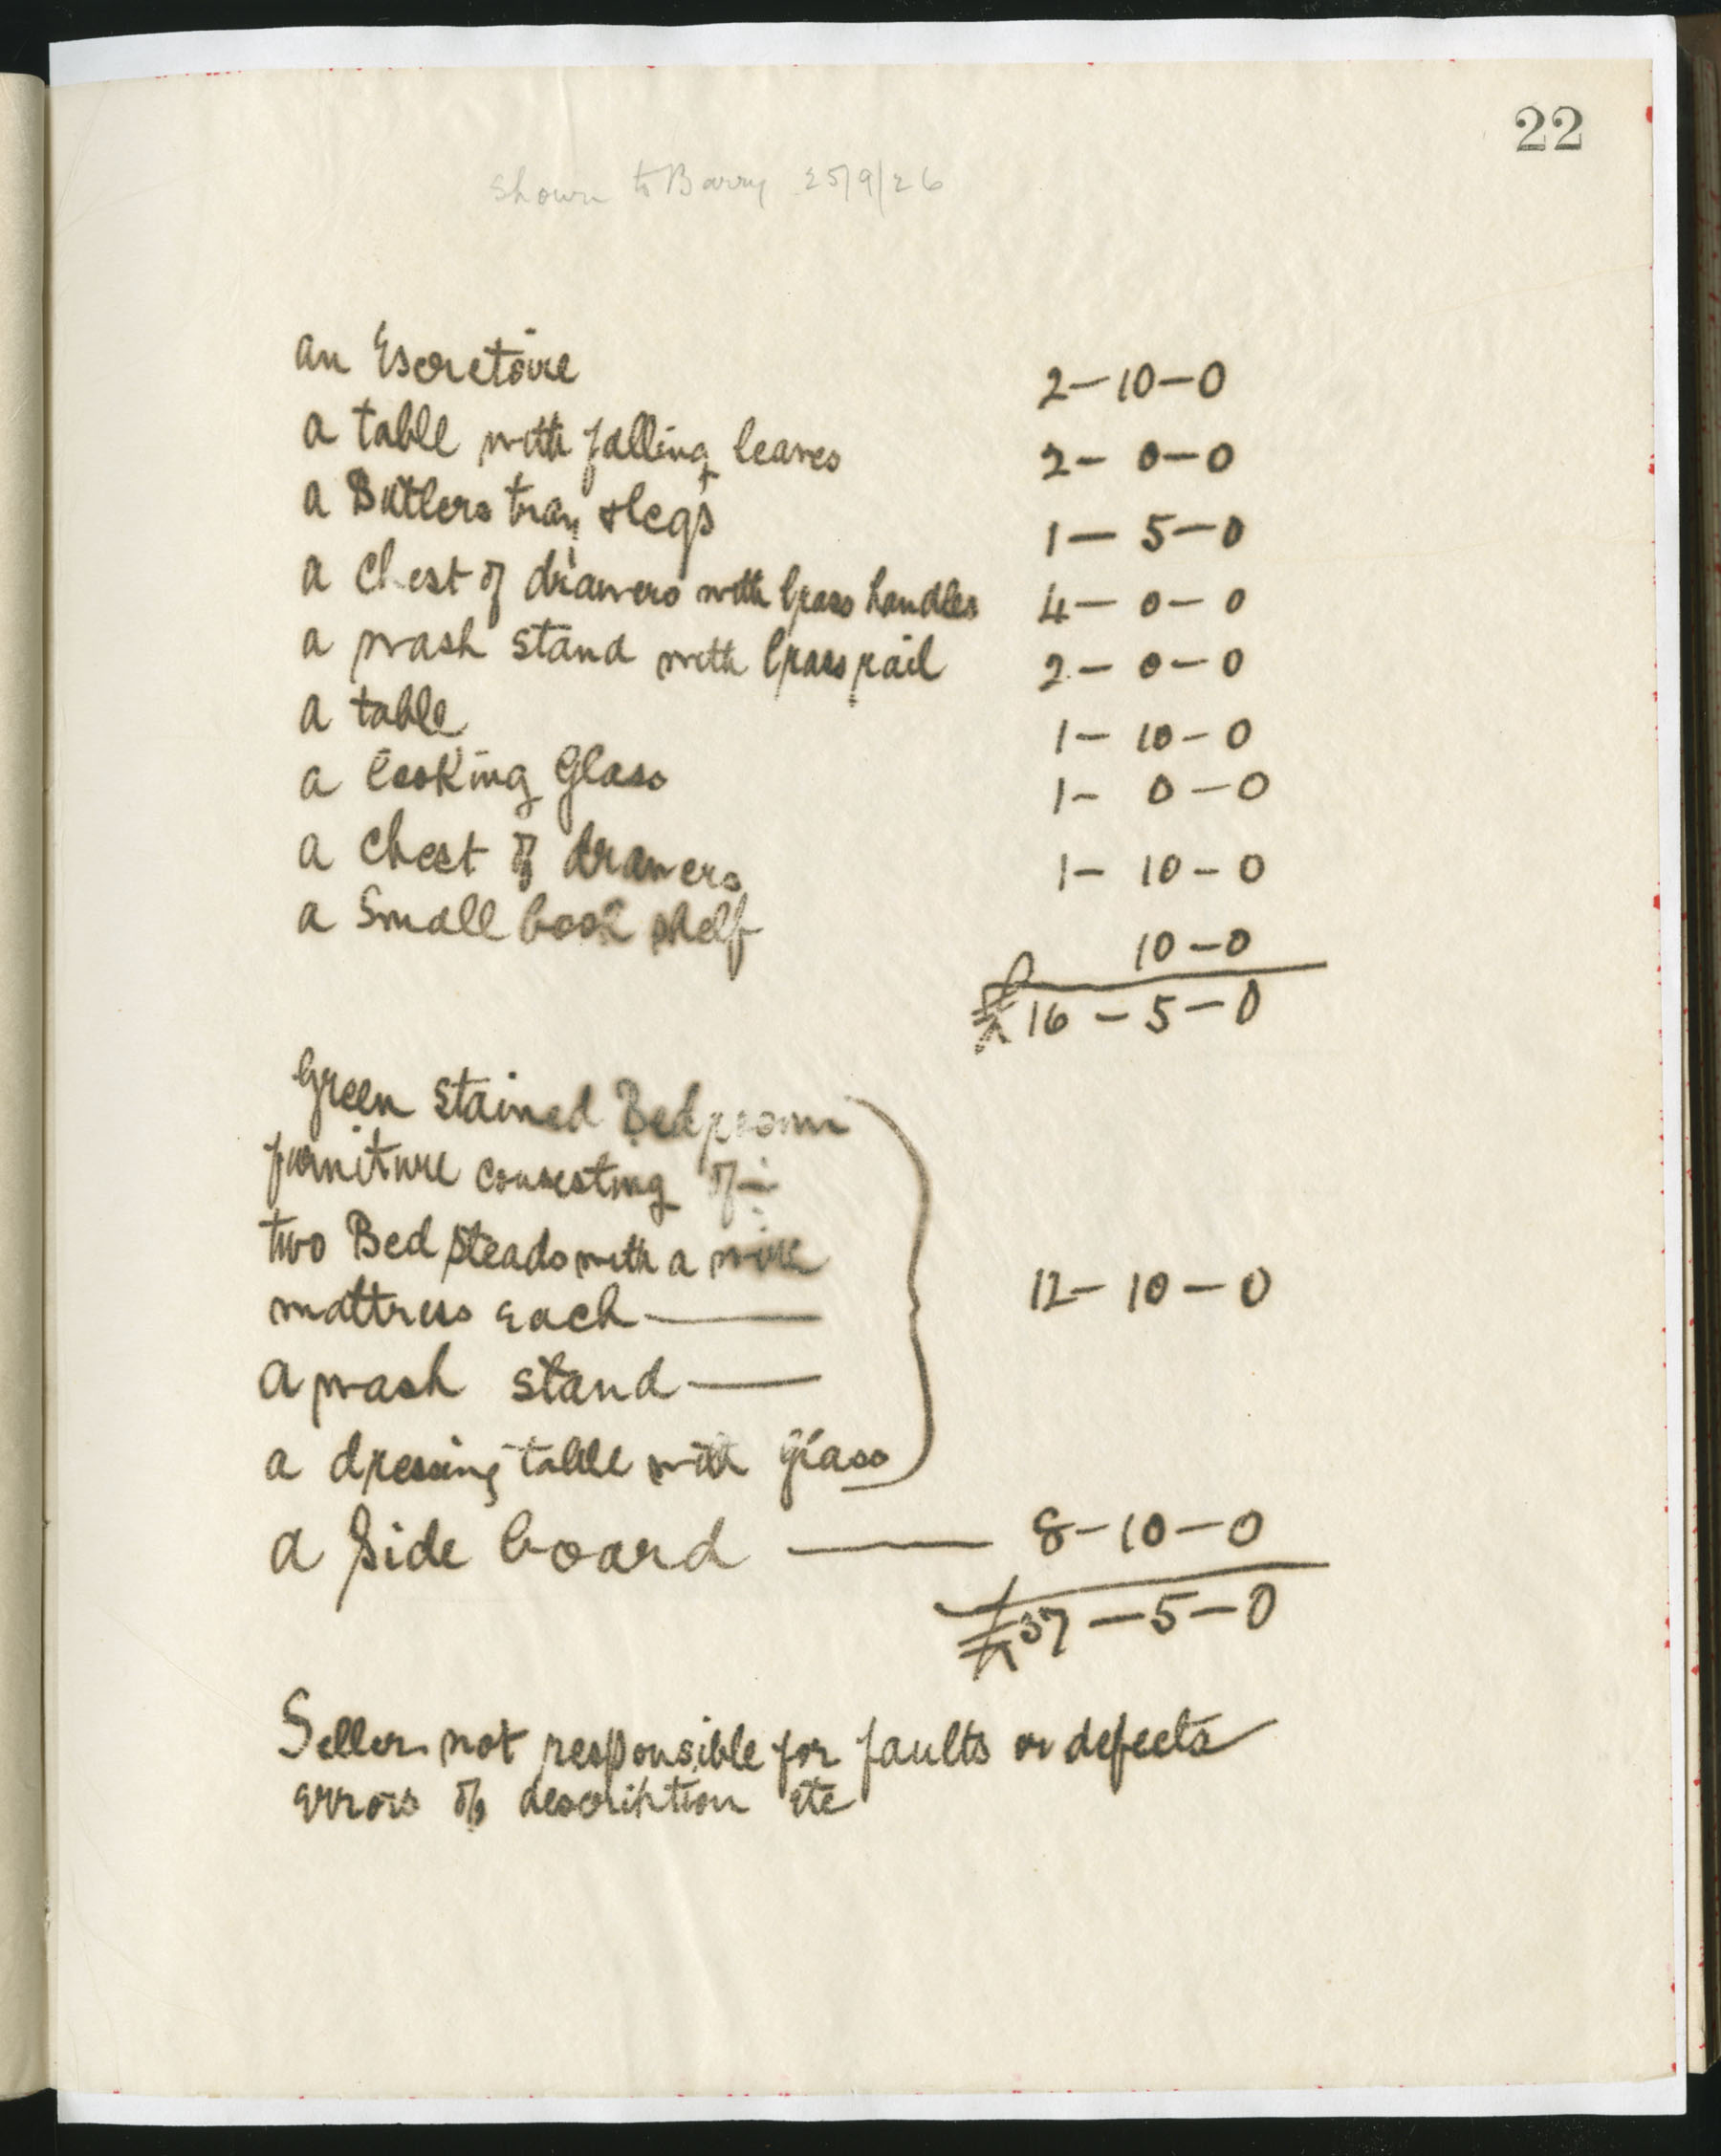 22
Shown to Barry 25/9/26
an Escretoire 2-10-0
a table with falling leaves 2-0-0
a Butlers tray & legs 1-5-0
a Chest of drawers with brass handles 4-0-0
a wash stand with brass rail 2-0-0
a table 1-10-0
a Looking Glass 1-0-0
a Chest of drawers 1-10-0
a Small book shelf 10-0
£16-5-0
Green Stained Bedroom
furniture consisting of:-
two Bed Steads with a wire
mattress each — 12-10-0
a wash stand —
a dressing table with glass
a Side board — 8-10-0
£37-5-0
Seller not responsible for faults or defects
errors of description etc